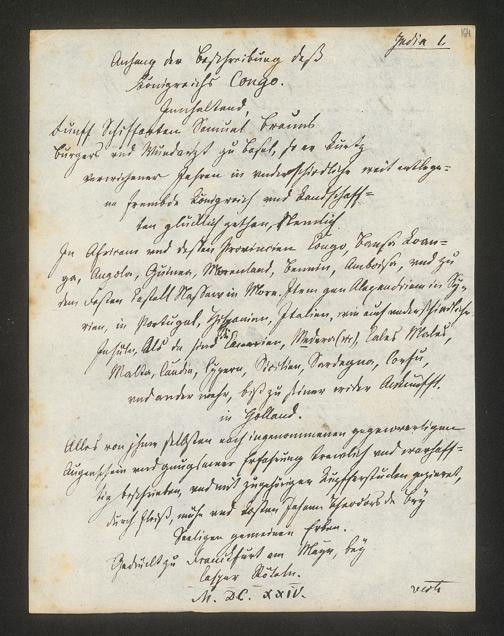 India 1.
Anhang der Beschreibung deß
Königreichs Congo.
Innhaltend
Fünff Schiffarten Samuel Brauns
Burgers und Wundartzt zu Basel, so er kürtz
verwichener Jahren in underschiedliche weit entlege=
ne frembde Königreich und Landschaff=
ten glücklich gethan, Nemlich
In Africam und dessen Provincien Congo, Bansa Loan=
ga, Angola, Guinea, Morenland, Bennin, Ambosia, und zu
dem vesten Castell Nassaw in More. Item gen Alexandriam in Sy=
rien, in Portugal, Hispanien, Italien, wie auch underschiedliche
Insuln, Als da sind Canarien, Medera, Cales Males,
Malta, Candia, Cypern, Sicilien, Sardegna, Corfu,
und ander mehr, biß zu seiner wider Ankunfft.
in Holland.
Alles von jhme selbsten nach ingenommenen gegenwertigen
Augenschein und gnugsamer Erfahrung trewlich und warhaff=
tig beschrieben, und mit zugehöriger Kupfferstucken gezieret,
durch Fleiß, mühe und Kosten Johann Theodors de Bry
Seeligen gemeinen Erben.
Gedruckt zu Franckfurt am Mayn, bey
Caspar Röteln.
M. DC. XXIV.